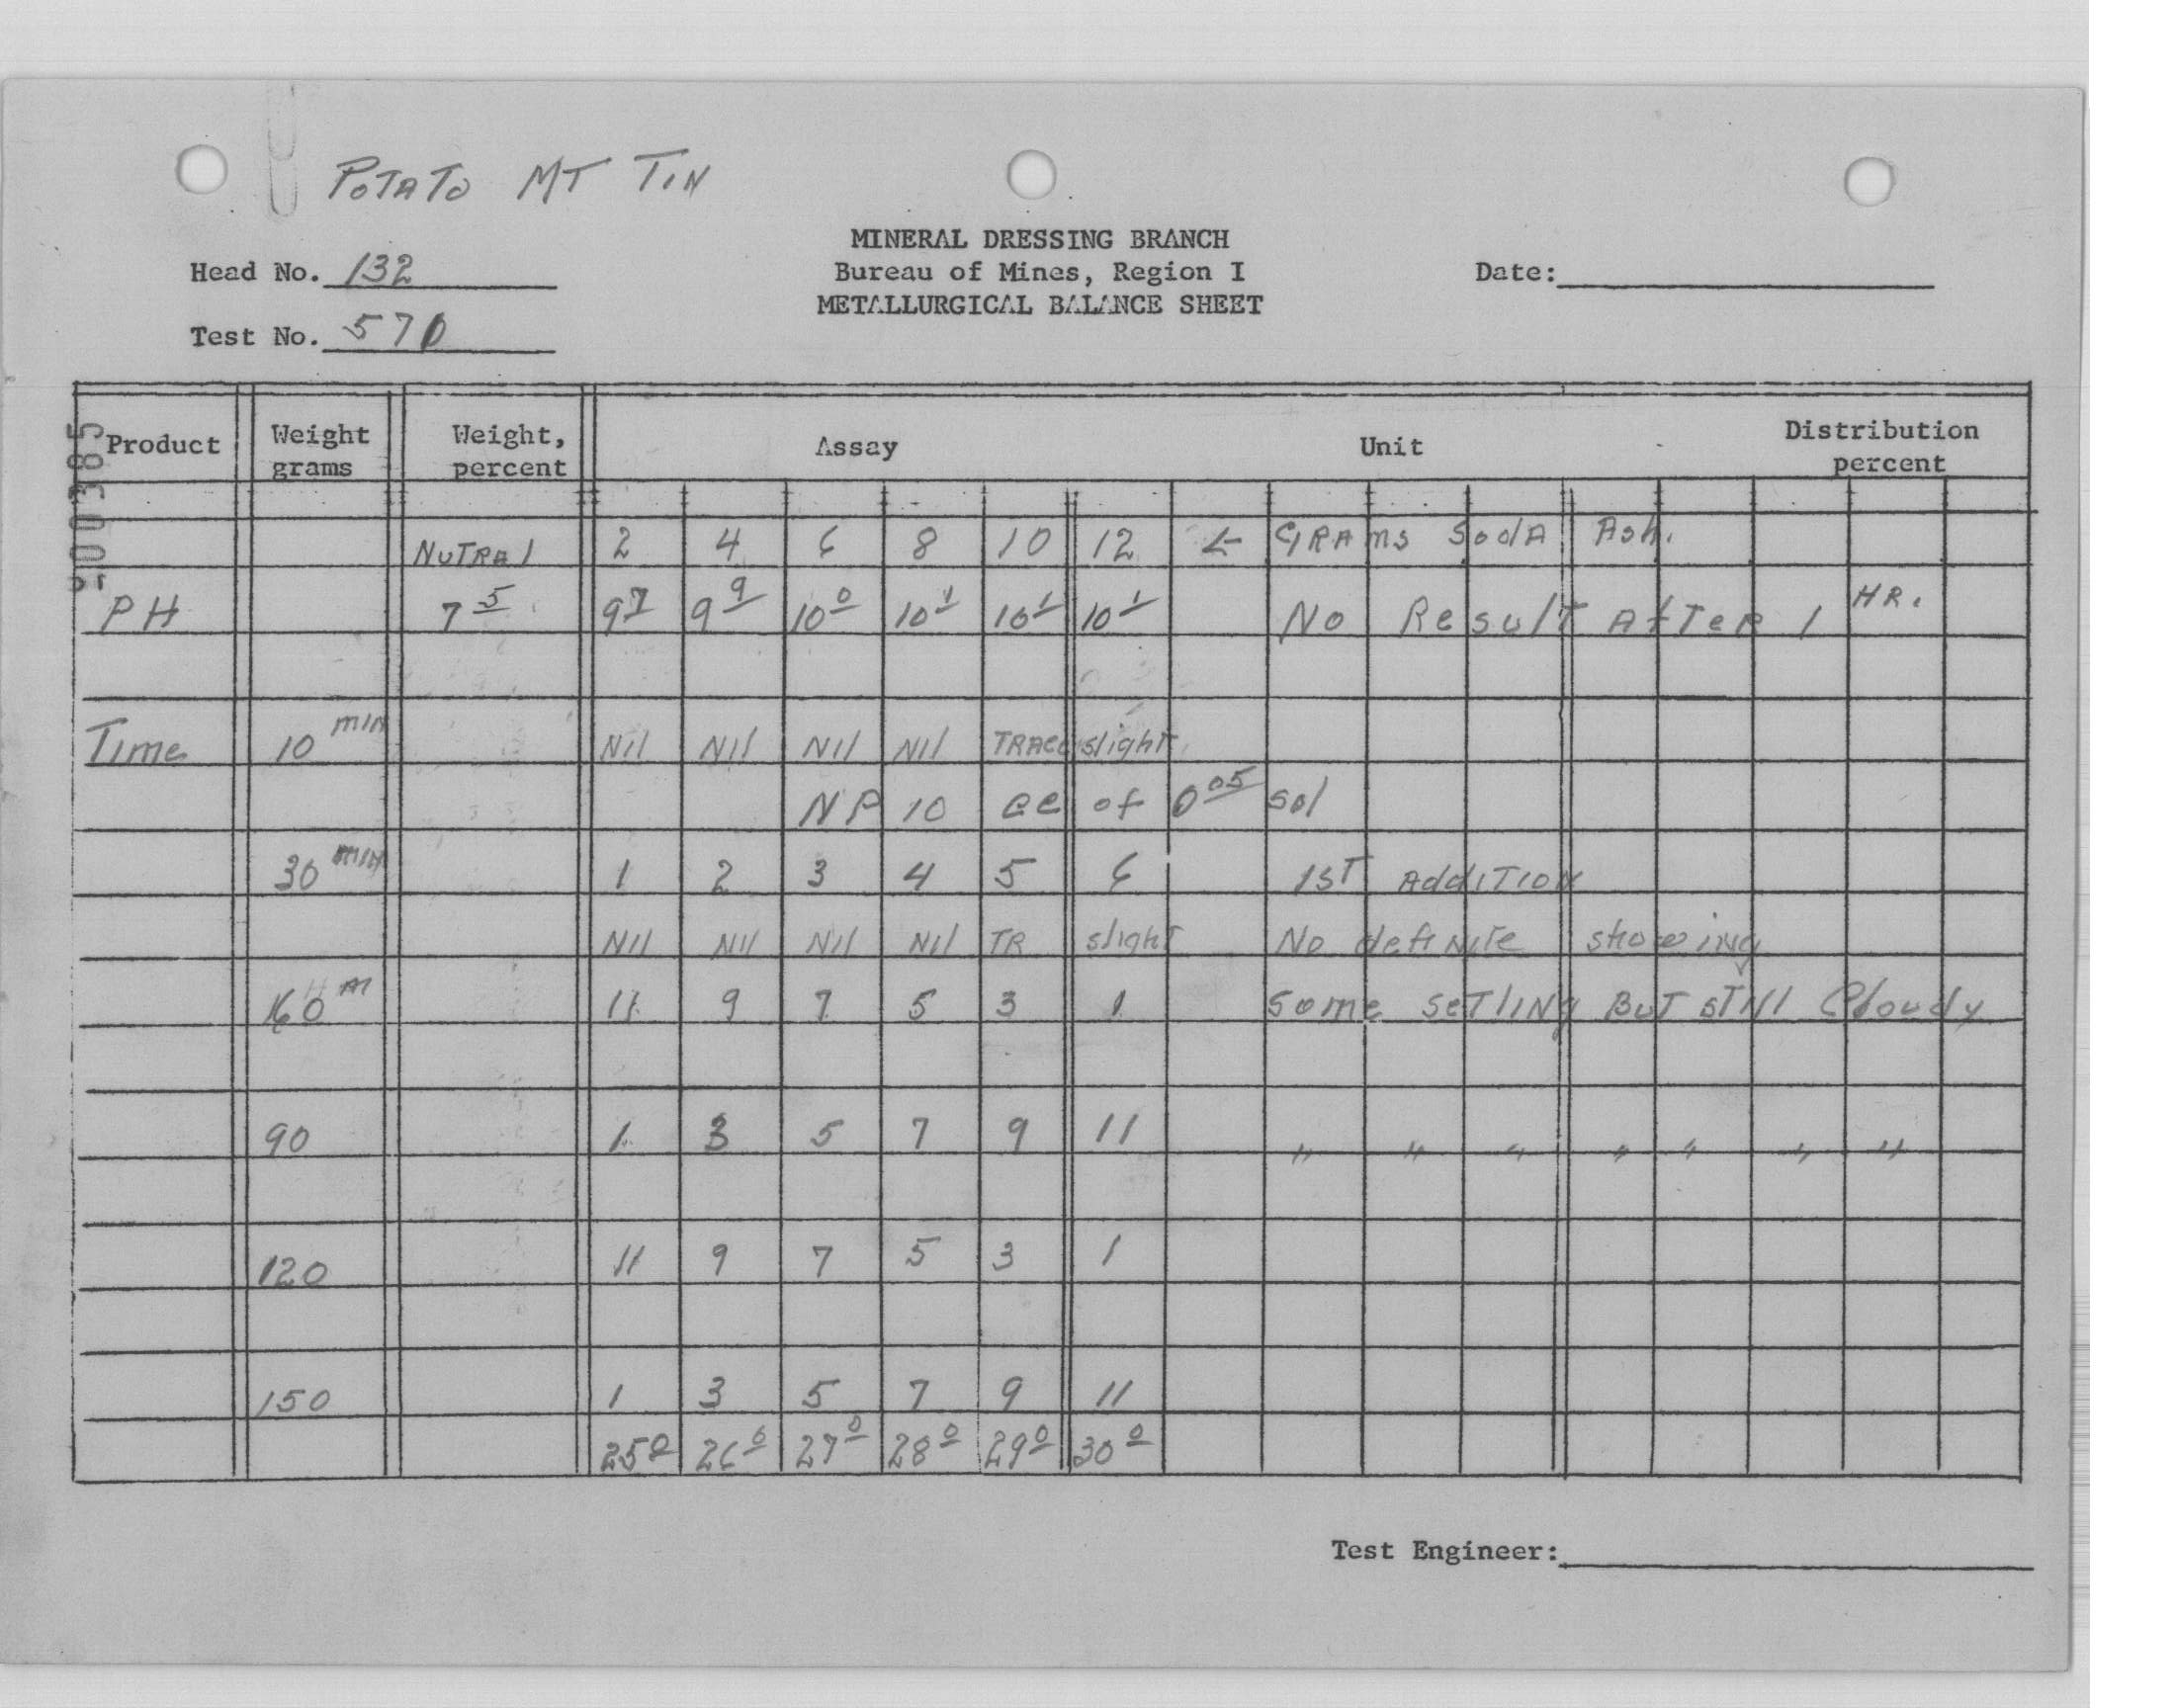 POTATO MT TIN
MINERAL DRESSING BRANCH
Head No. 132 Bureau of Mines, Region I Date:
METALLURGICAL BALANCE SHEET
Test No. 570
200385
Product Weight grams Weight, percent Assay Unit Distribution percent
NUTRAl 2 4 6 8 10 12 ← GRAMS SodA Ash.
PH 7 5 9 7 9 9 10 0 10 1 10 1 10 1 No Result AfTer 1 HR.
Time 10 MIN Nil Nil Nil Nil TRACE slight
NP 10 CC of 0 05 sol
30 MIN 1 2 3 4 5 6 1ST AddITION
Nil Nil Nil Nil TR slight No defiNiTe showing
60 M 11 9 7 5 3 1 Some SeTlINg BuT sTIll Cloudy
90 1 3 5 7 9 11 " " " " " " "
120 11 9 7 5 3 1
150 1 3 5 7 9 11
25 0 26 0 27 0 28 0 29 0 30 0
Test Engineer: